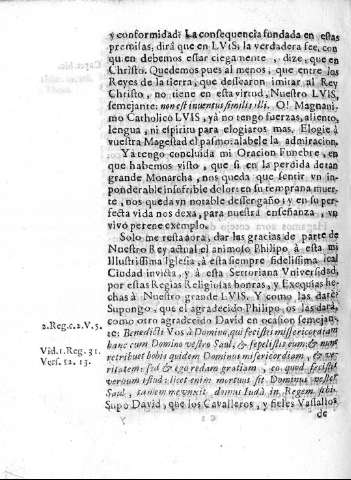 y conformidad: La consequencia fundada en estas
premisas, dirà que en LVIS, la verdadera fee, con
qu en debemos essar ciegamente, dize, que en
Christo. Quedemos pues al menos, que entre los
Reyes de la tierra, que dessearon imitar al Rey
Christo, no tiene en esta virtud, Nuestro LVIS,
semejante: non est inventus similis illi. O! Magnani-
mo Catholico LVIS, yà no tengo fuerzas, aliento,
lengua, ni espiritu para elogiaros mas. Elogie à
vuestra Magestad el pasmo, alabele la admiracion.
Ya tengo concluida mi Oracion Funebre, en
que habemos visto, que si en la perdida de an
grande Monarcha, nos queda que sentir vn in-
ponderable insufrible dolor: en su temprana muer-
te, nos queda vn notable desengaño: y en su per-
fecta vida nos dexa, para nuestra enseñanza, vn
vivo perene exemplo.
Solo me resta aora, dar las gracias de parte de
Nuestro Rey actual el animoso Philipo à esta mi
Illustrissima Iglesia, à esta siempre fidelissima leal
Ciudad invicta, y à esta Sertoriana Vniversidad,
por estas Regias Religiosas honras, y Exequias he-
chas à Nuestro grande LVIS. Y como las darè?
Supongo, que el agradecido Philipo os las darà,
como otro agradecido David en ocasion semejan-
2.Reg.c.2.V.5. te: Benedicti Vos à Domino, qui fecistis misericordiam
hanc cum Domino vestro Saul, & sepelistis eum: & nunc
Vid. 1. Reg. 31. retribuet vobis quidem Dominus misericordiam, & ve-
Vers. 12. 13. ritatem: sed & ego redam gratiam, eo quod fecistis
verbum istud: licet enim mortuus sit Dominus vester
Saul, tamen me vnxit domus Iudà in Regem sibi.
Supo David, que los Cavalleros, y fieles Vassallos
de